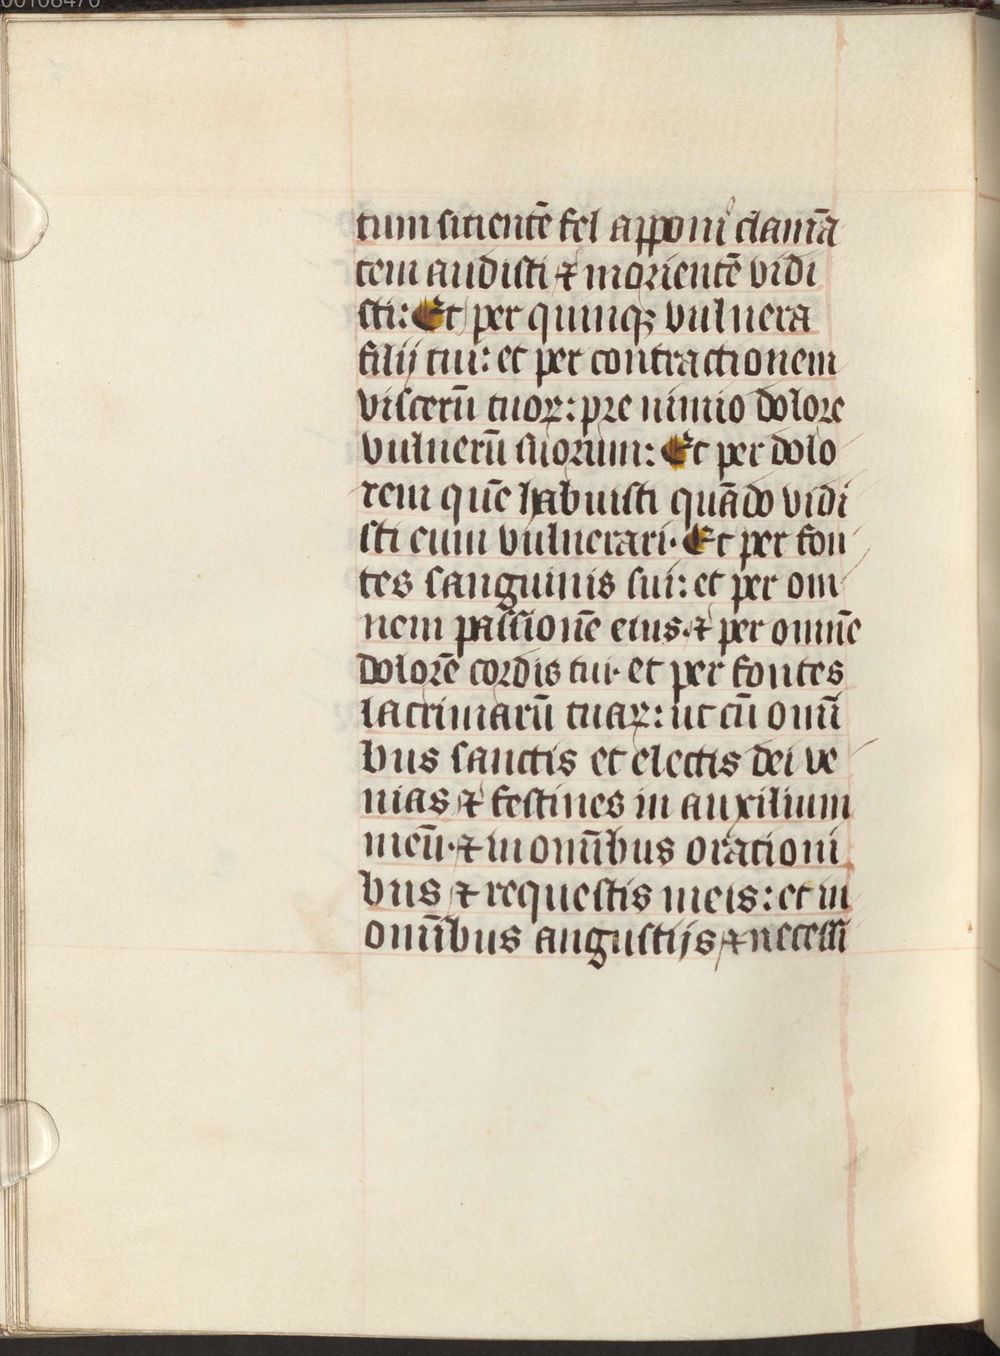 tum sitientē fel apponi clamā
tem audisti ⁊ morientē vidi
sti: Et per quinqꝫ vulnera
filij tui: et per contractionem
viscerū tuoꝝ: pre nimio dolore
vulnerū suorum: Et per dolo
rem quē habuisti quādo vidi
sti eum vulnerari· Et per fon
tes sanguinis sui: et per om
nem passionē eius·⁊ per omnē
dolorē cordis tui· et per fontes
lacrimarū tuaꝝ: ut cū omī
bus sanctis et electis dei ve
nias ⁊ festines in auxilium
meū·⁊ in omībus orationi
bus ⁊ requestis meis: et in
omībus angustijs ⁊ necessi